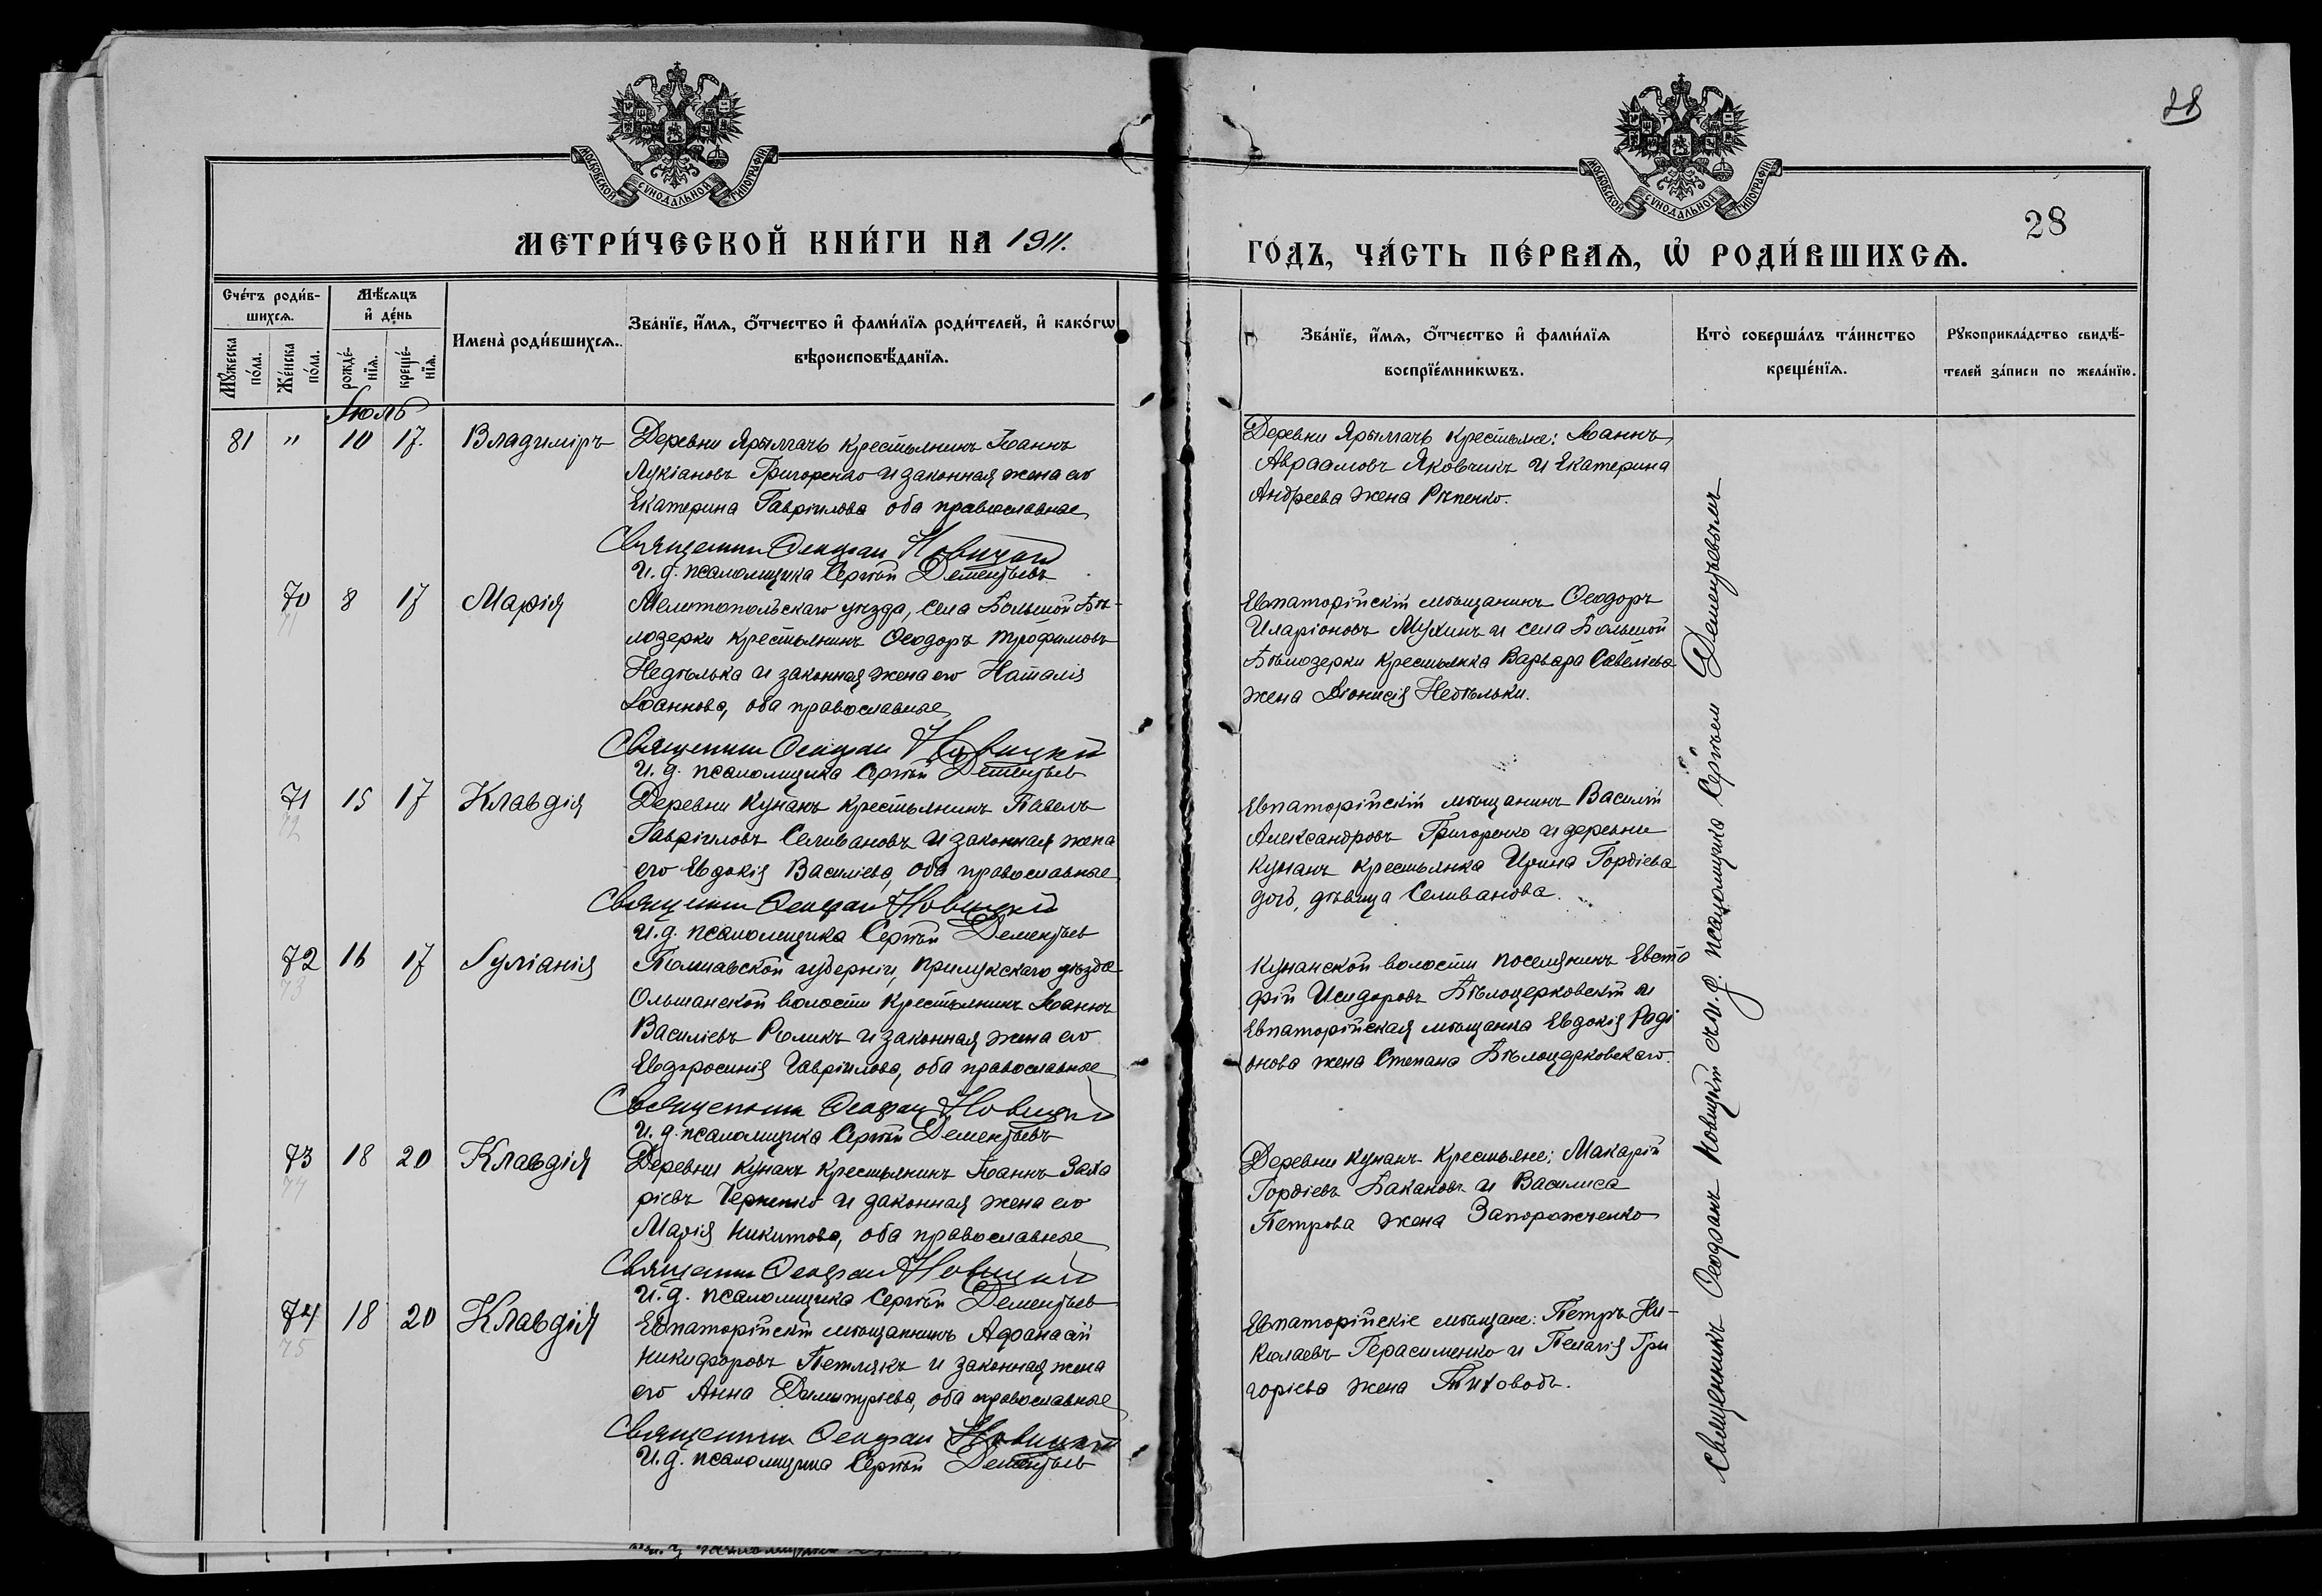 28
МОСКОВСКОЙ СѴНОДАЛЬНОЙ ТИПОГРАФІИ
МОСКОВСКОЙ СѴНОДАЛЬНОЙ ТИПОГРАФІИ
28
МЕТРИ́ЧЕСКОЙ КНИ́ГИ НА 1911.
ГО́ДЪ, ЧА́СТЬ ПЕ́РВАѦ, Ѡ҆ РОДИ́ВШИХСѦ.
Сче́тъ роди́в-
шихсѧ.
Мꙋ́жеска по́ла.
Же́нска по́ла.
Мѣ́сѧцъ
и҆ де́нь
рожде́-
нїѧ.
креще́-
нїѧ.
Имена̀ роди́вшихсѧ.
Зва́нїе, и҆́мѧ, ѻ҆́тчество и҆ фами́лїѧ роди́телей, и҆ како́гѡ
вѣроисповѣ́данїѧ.
Зва́нїе, и҆́мѧ, ѻ҆́тчество и҆ фами́лїѧ
воспрїе́мникѡвъ.
Кто̀ соверша́лъ та́инство
креще́нїѧ.
Рꙋкоприкла́дство свидѣ́-
телей за́писи по жела́нїю.
Іюль
81 " 10 17. Владиміръ
Деревни Ярылгачъ крестьянинъ Іоаннъ
Лукіановъ Григоренко и законная жена его
Екатерина Гавріилова оба православные
Священникъ Ѳеофан Новицкій
И. д. псаломщика Сергѣй Дементьевъ
Деревни Ярылгачъ крестьяне: Іоаннъ
Авраамовъ Яковчикъ и Екатерина
Андреева жена Рѣпенко.
70 8 17 Марія
71
Мелитопольскаго уѣзда, села Большой Бѣ-
лозерки крестьянинъ Ѳеодоръ Трофимовъ
Недѣлька и законная жена его Наталія
Іоаннова, оба православные
Священник Ѳеофан Новицкій
И. д. псаломщика Сергѣй Дементьев
Евпаторійскій мѣщанинъ Ѳеодоръ
Иларіоновъ Мухинъ и села Большой
Бѣлозерки крестьянка Варвара Савеліева
жена Діонисія Недѣльки.
71 15 17 Клавдія
72
Деревни Кунанъ крестьянинъ Павелъ
Гавріиловъ Селивановъ и законная жена
его Евдокія Василіева, оба православные
Священник Ѳеофан Новицкій
И. д. псаломщика Сергѣй Дементьев
Евпаторійскій мѣщанинъ Василій
Александровъ Григоренко и деревни
Кунанъ крестьянка Ирина Гордіева
дочь, дѣвица Селиванова.
72 16 17 Іуліанія
73
Полтавской губерніи, Прилукскаго уѣзда
Ольшанской волости крестьянинъ Іоаннъ
Василіевъ Роликъ и законная жена его
Евфросинія Гавріилова, оба православные
Священник Ѳеофан Новицкій
И. д. псаломщика Сергѣй Дементьевъ
Кунанской волости поселянинъ Евста
фій Исидоровъ Бѣлоцерковскій и
Евпаторійская мѣщанка Евдокія Раді
онова жена Степана Бѣлоцерковскаго.
73 18 20 Клавдія
74
Деревни Кунанъ крестьянинъ Іоаннъ Заха
ріевъ Черненко и законная жена его
Марія Никитова, оба православные
Священник Ѳеофан Новицкій
И. д. псаломщика Сергѣй Дементьев
Деревни Кунанъ крестьяне: Макарій
Гордіевъ Бакановъ и Василиса
Петрова жена Запорожченко
74 18 20 Клавдія
75
Евпаторійскій мѣщанинъ Афанасій
Никифоровъ Петлякъ и законная жена
его Анна Димитріева, оба православные
Священник Ѳеофан Новицкій
И. д. псаломщика Сергѣй Дементьев
Евпаторійскіе мѣщане: Петръ Ни-
колаевъ Герасименко и Пелагія Гри
горіева жена Тиховодъ.
Священникъ Ѳеофанъ Новицкій съ и. д. псаломщика Сергѣем Дементьевымъ